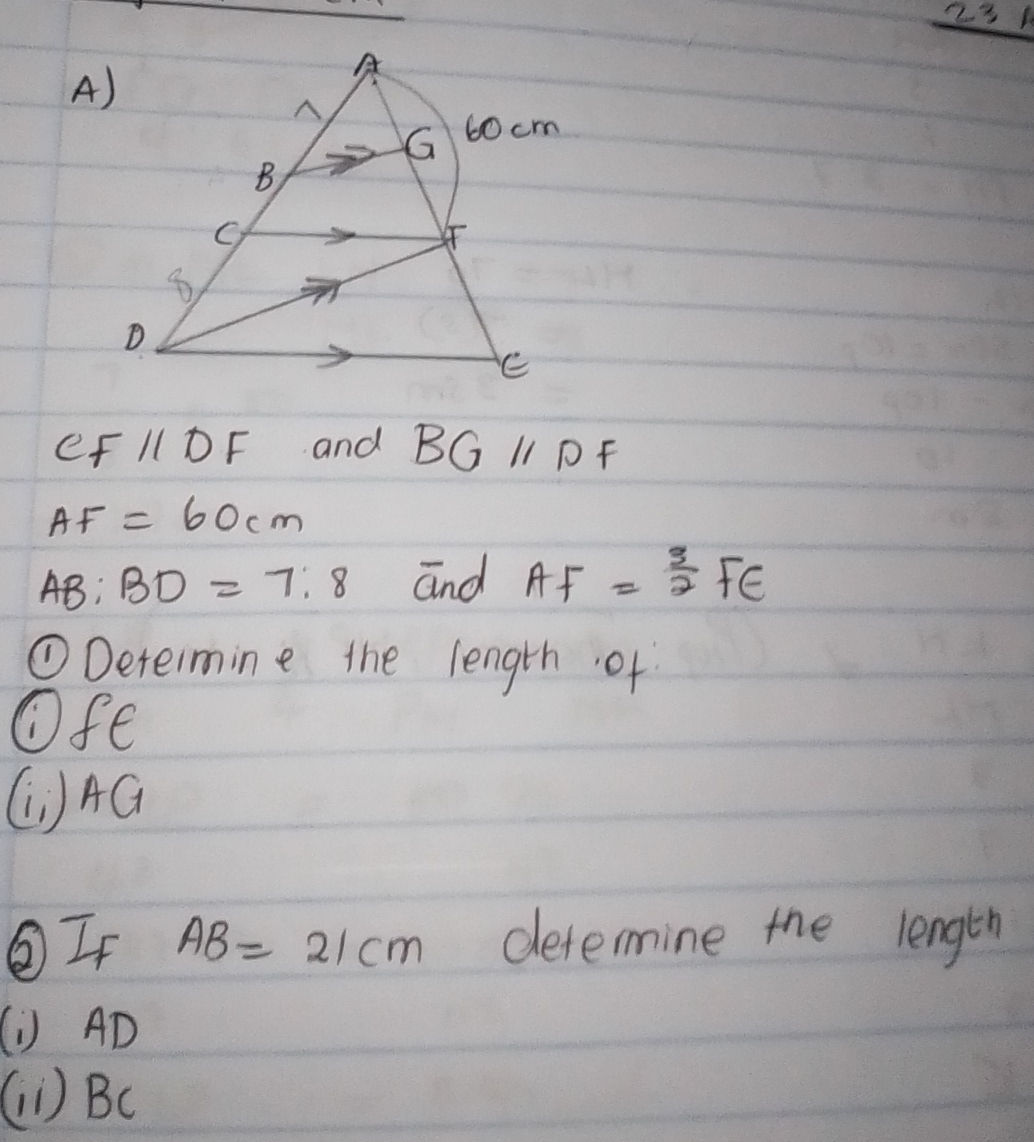 23
A)
A
7
60cm
G
B
C
F
8
D
E
CF // DF and BG // DF
AF = 60cm
AB : BD = 7 : 8 and AF = 3/2 FE
① Determine the length of:
(i) FE
(ii) AG
② If AB = 21cm determine the length
(i) AD
(ii) BC